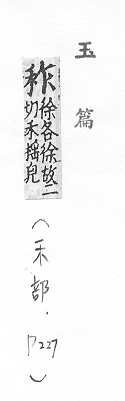 玉篇
秨徐各徐故二
切禾揺皃
(禾部.P227)